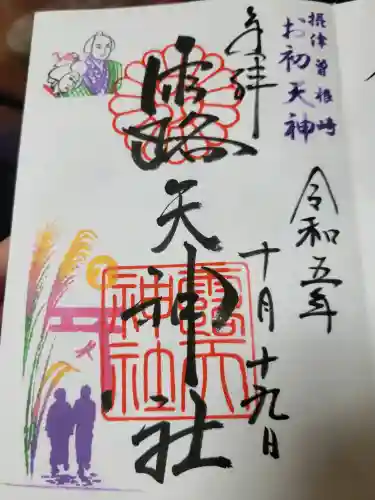 摂津曽根崎
お初天神
奉拝
令和五年
十月十九日
露天神社
露天神社